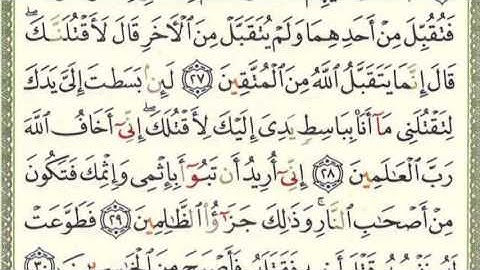 فَتُقُبِّلَ مِنْ أَحَدِهِمَا وَلَمْ يُتَقَبَّلْ مِنَ ٱلْأٓخَرِ قَالَ لَأَقْتُلَنَّكَۖ
قَالَ إِنَّمَا يَتَقَبَّلُ ٱللَّهُ مِنَ ٱلْمُتَّقِينَ ٢٧ لَئِنۢ بَسَطتَ إِلَىَّ يَدَكَ
لِتَقْتُلَنِى مَآ أَنَا۠ بِبَاسِطٍ يَدِىَ إِلَيْكَ لِأَقْتُلَكَۖ إِنِّىٓ أَخَافُ ٱللَّهَ
رَبَّ ٱلْعَٰلَمِينَ ٢٨ إِنِّىٓ أُرِيدُ أَن تَبُوٓأَ بِإِثْمِى وَإِثْمِكَ فَتَكُونَ
مِنْ أَصْحَٰبِ ٱلنَّارِۚ وَذَٰلِكَ جَزَٰٓؤُا۟ ٱلظَّٰلِمِينَ ٢٩ فَطَوَّعَتْ
لَهُۥ نَفْسُهُۥ قَتْلَ أَخِيهِ فَقَتَلَهُۥ فَأَصْبَحَ مِنَ ٱلْخَٰسِرِينَ ٣٠